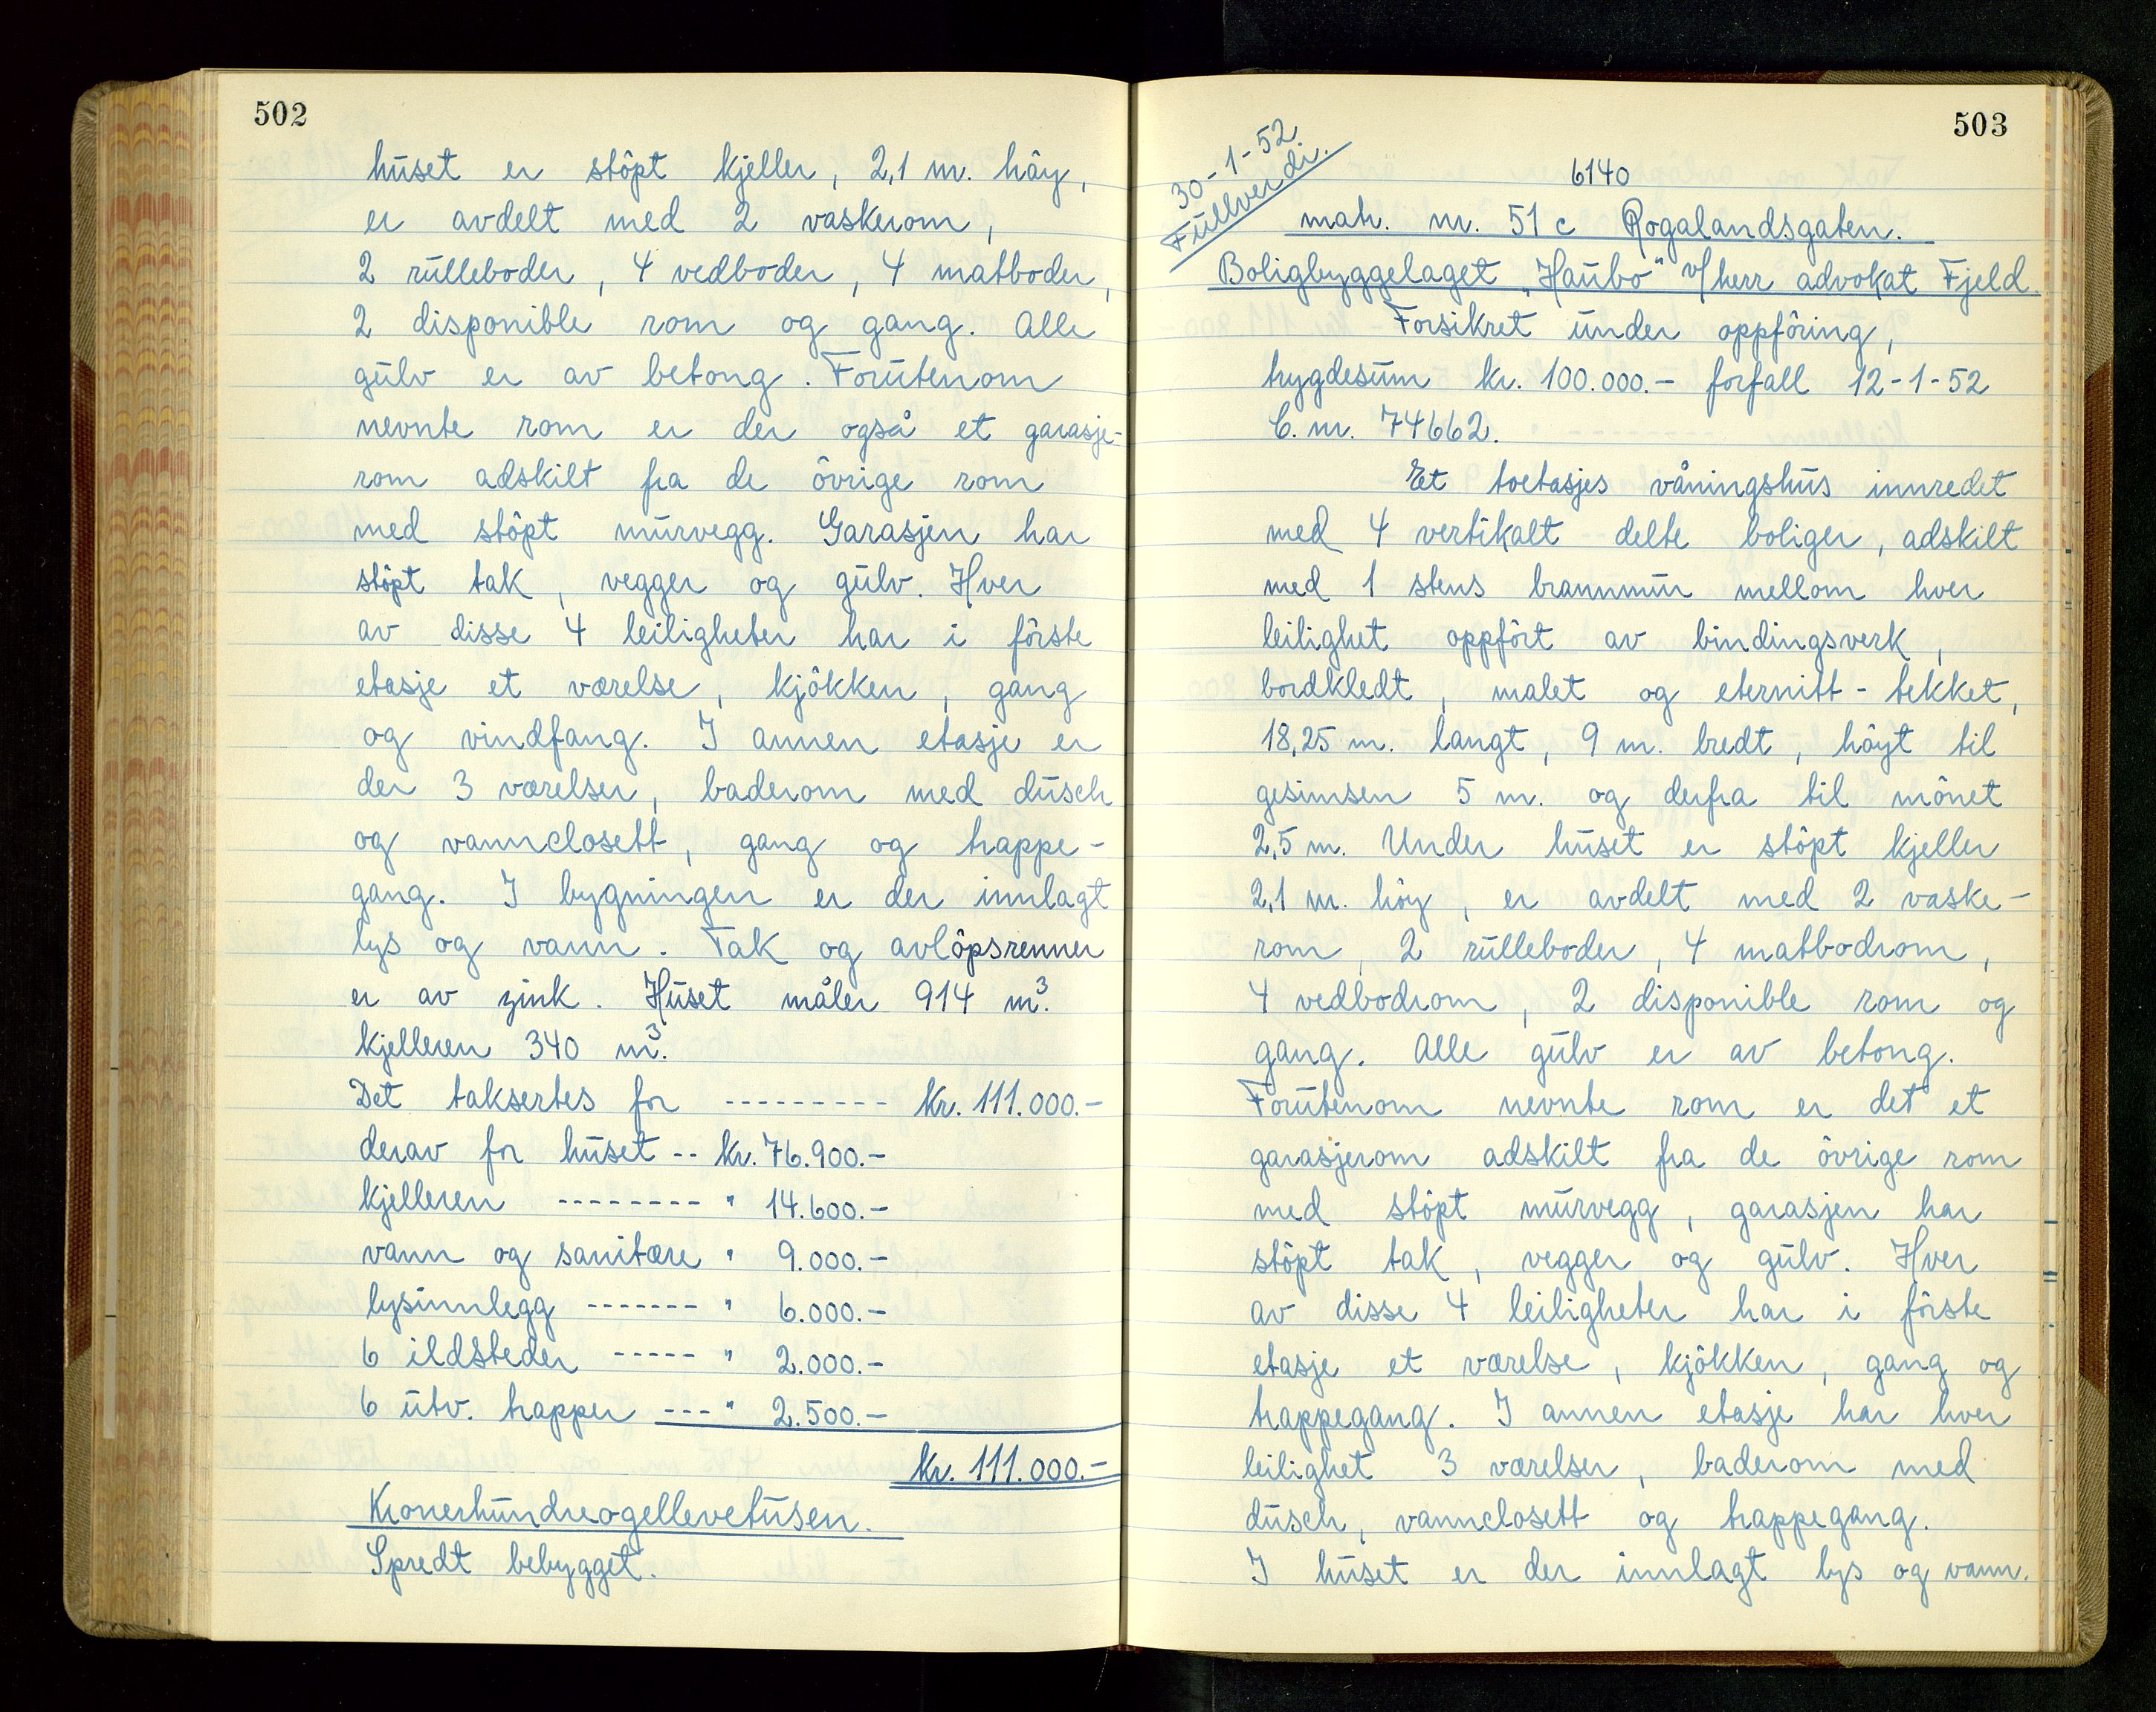 502
huset er stôpt kjeller, 2,1 m. hôy,
er avdelt med 2 vaskerom,
2 rulleboder, 4 vedboder, 4 matboder,
2 disponible rom og gang. Alle
gulv er av betong. Forutenom
nevnte rom er der også et garasje-
rom adskilt fra de ôvrige rom
med stôpt murvegg. Garasjen har
stôpt tak, vegger og gulv. Hver
av disse 4 leiligheter har i fôrste
etasje et værelse, kjôkken, gang
og vindfang. I annen etasje er
der 3 værelser, baderom med dusch
og vannclosett, gang og trappe-
gang. I bygningen er der innlagt
lys og vann. Tak og avlôpsrenner
er av zink. Huset måler 914 m³.
kjelleren 340 m³.
Det taksertes for --------- kr. 111.000.-
derav for huset -- kr. 76.900.-
kjelleren -------- " 14.600.-
vann og sanitære " 9.000.-
lysinnlegg ------- " 6.000.-
6 ildsteder ----- " 2.000.-
6 utv. trapper --- " 2.500.-
kr. 111.000.-
Kronerhundreogellevetusen.
Spredt bebygget.
503
30-1-52
Fullverdi.
6140
matr. nr. 51 c Rogalandsgaten.
Boligbyggelaget „Haubo" v/herr advokat Fjeld.
Forsikret under oppfôring,
trygdesum kr. 100.000.- forfall 12-1-52
C. nr. 74662.
Et toetasjes våningshus innredet
med 4 vertikalt delte boliger, adskilt
med 1 stens brannmur mellom hver
leilighet oppfôrt av bindingsverk,
bordkledt, malet og eternitt-tekket,
18,25 m. langt, 9 m. bredt, hôyt til
gesimsen 5 m. og derfra til mônet
2,5 m. Under huset er stôpt kjeller
2,1 m. hôy, er avdelt med 2 vaske-
rom, 2 rulleboder, 4 matbodrom,
4 vedbodrom, 2 disponible rom og
gang. Alle gulv er av betong.
Forutenom nevnte rom er det et
garasjerom adskilt fra de ôvrige rom
med stôpt murvegg, garasjen har
stôpt tak, vegger og gulv. Hver
av disse 4 leiligheter har i fôrste
etasje et værelse, kjôkken, gang og
trappegang. I annen etasje har hver
leilighet 3 værelser, baderom med
dusch, vannclosett og trappegang.
I huset er der innlagt lys og vann.